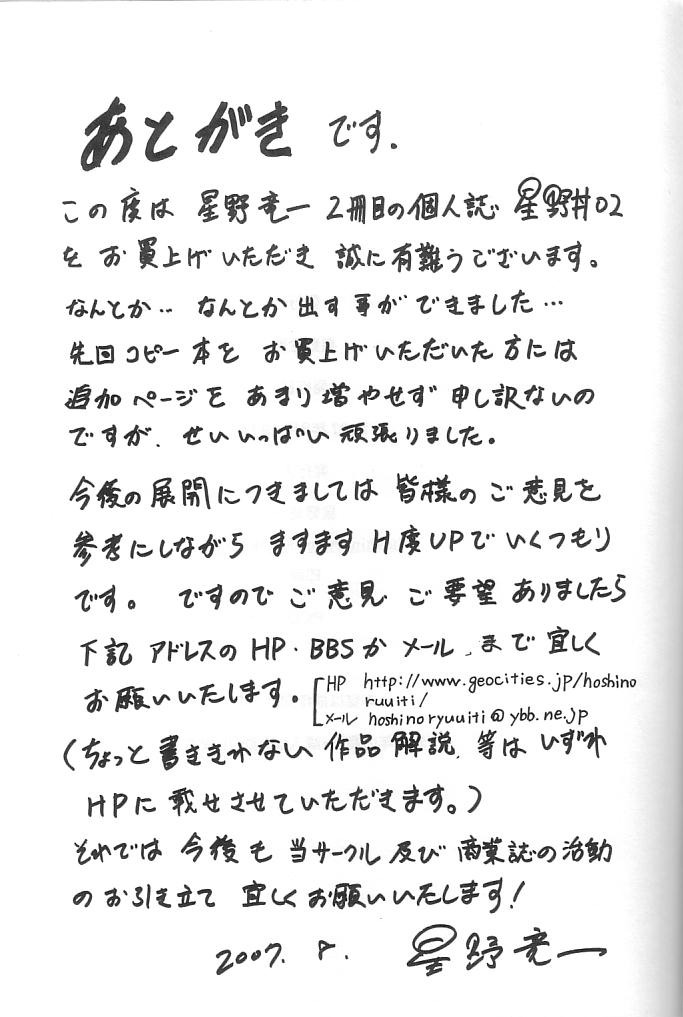 あとがき です.
この度は 星野竜一 2冊目の個人誌 星野丼02
を お買上げいただき 誠に有難うございます。
なんとか‥ なんとか出す事ができました…
先回コピー本を お買上げいただいた方には
追加ページを あまり増やせず 申し訳ないの
ですが、せいいっぱい頑張りました。
今後の展開につきましては 皆様のご意見を
参考にしながら ますますH度UPでいくつもり
です。 ですので ご意見 ご要望 ありましたら
下記 アドレスのHP・BBSか メール、まで 宜しく
お願いいたします。
HP http://www.geocities.jp/hoshino
ruuiti/
メール hoshinoryuuiti@ybb.ne.jp
(ちょっと書ききれない 作品解説、等は いずれ
HPに 載せさせていただきます。)
それでは 今後も 当サークル及び 商業誌の活動
のお引き立て 宜しくお願いいたします!
2007. 8. 星野竜一